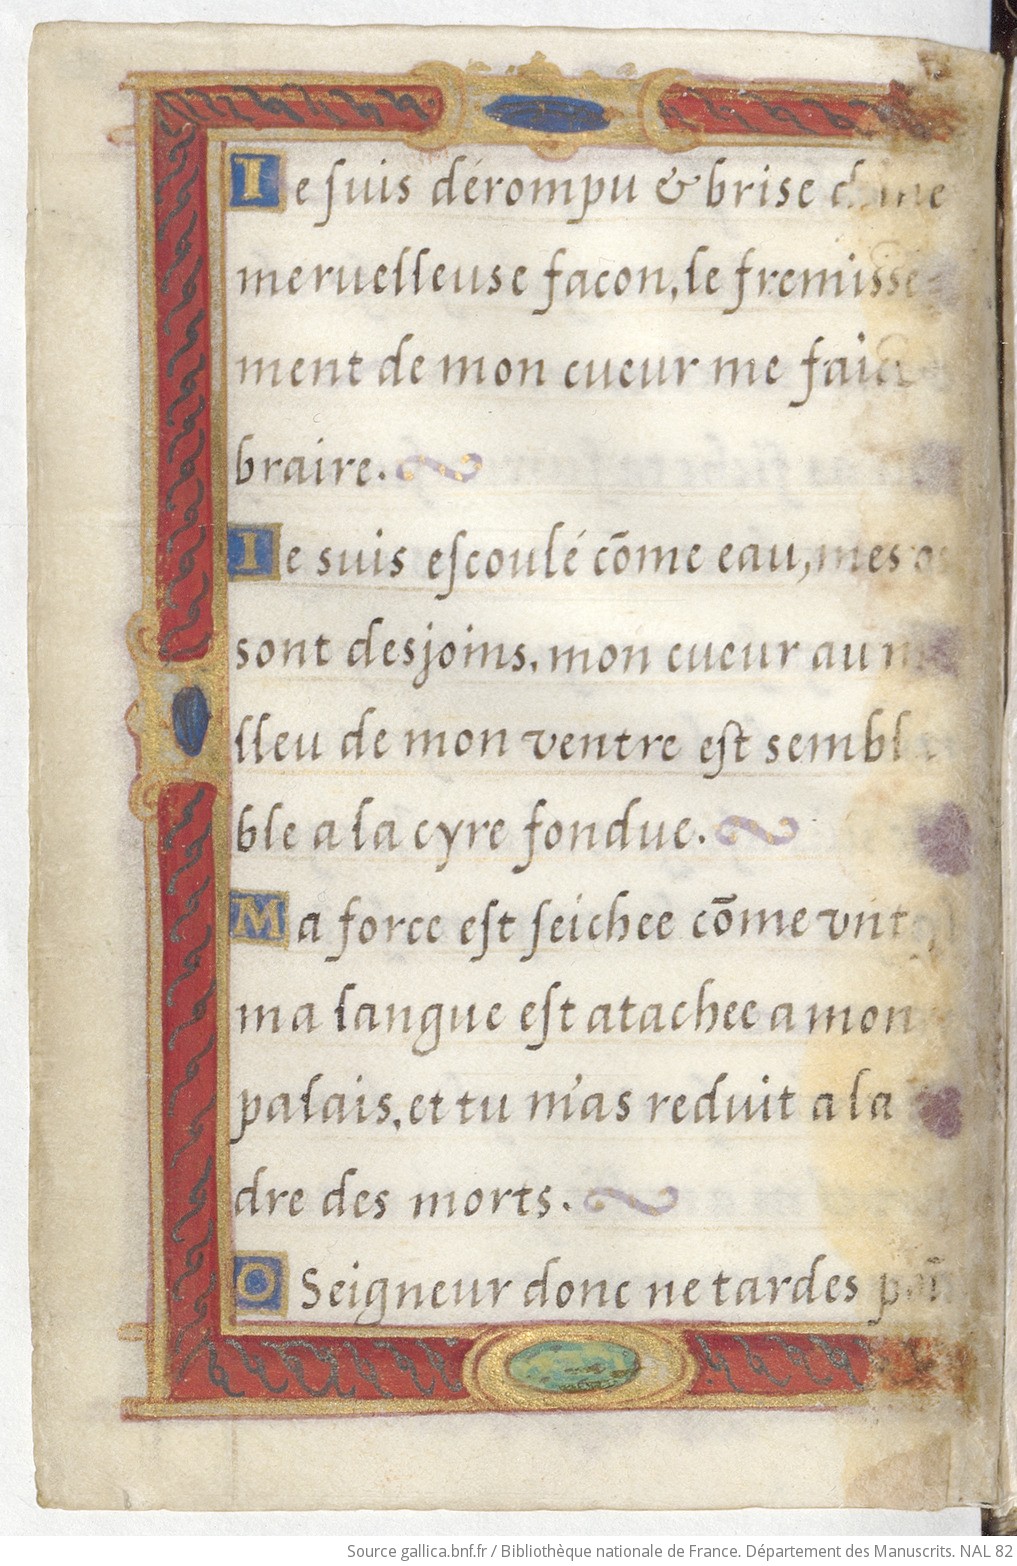 Ie suis dérompu & brise
merueılleuse facon, le fremisse
ment de mon cueur me faict
braire.
Ie suis escoulé cōme eau, mes os
sont desjoins, mon cueur au
lieu de mon ventre est
ble a la cyre fondue.
Ma force est seichee cōme
ma langue est atachee a mon
palais, et tu m'as reduit a la
dre des morts.
O Seigneur donc ne tardes
Source gallica.bnf.fr / Bibliothèque nationale de France. Département des Manuscrits. NAL 82